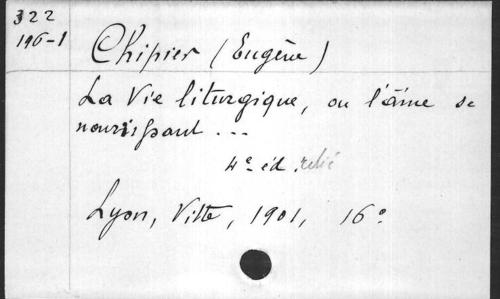 322
196-1
Chipier (Eugène)
La Vie liturgique, ou l'âme se
nourissant ...
4e éd. relié
Lyon, Vitte, 1901, 16°